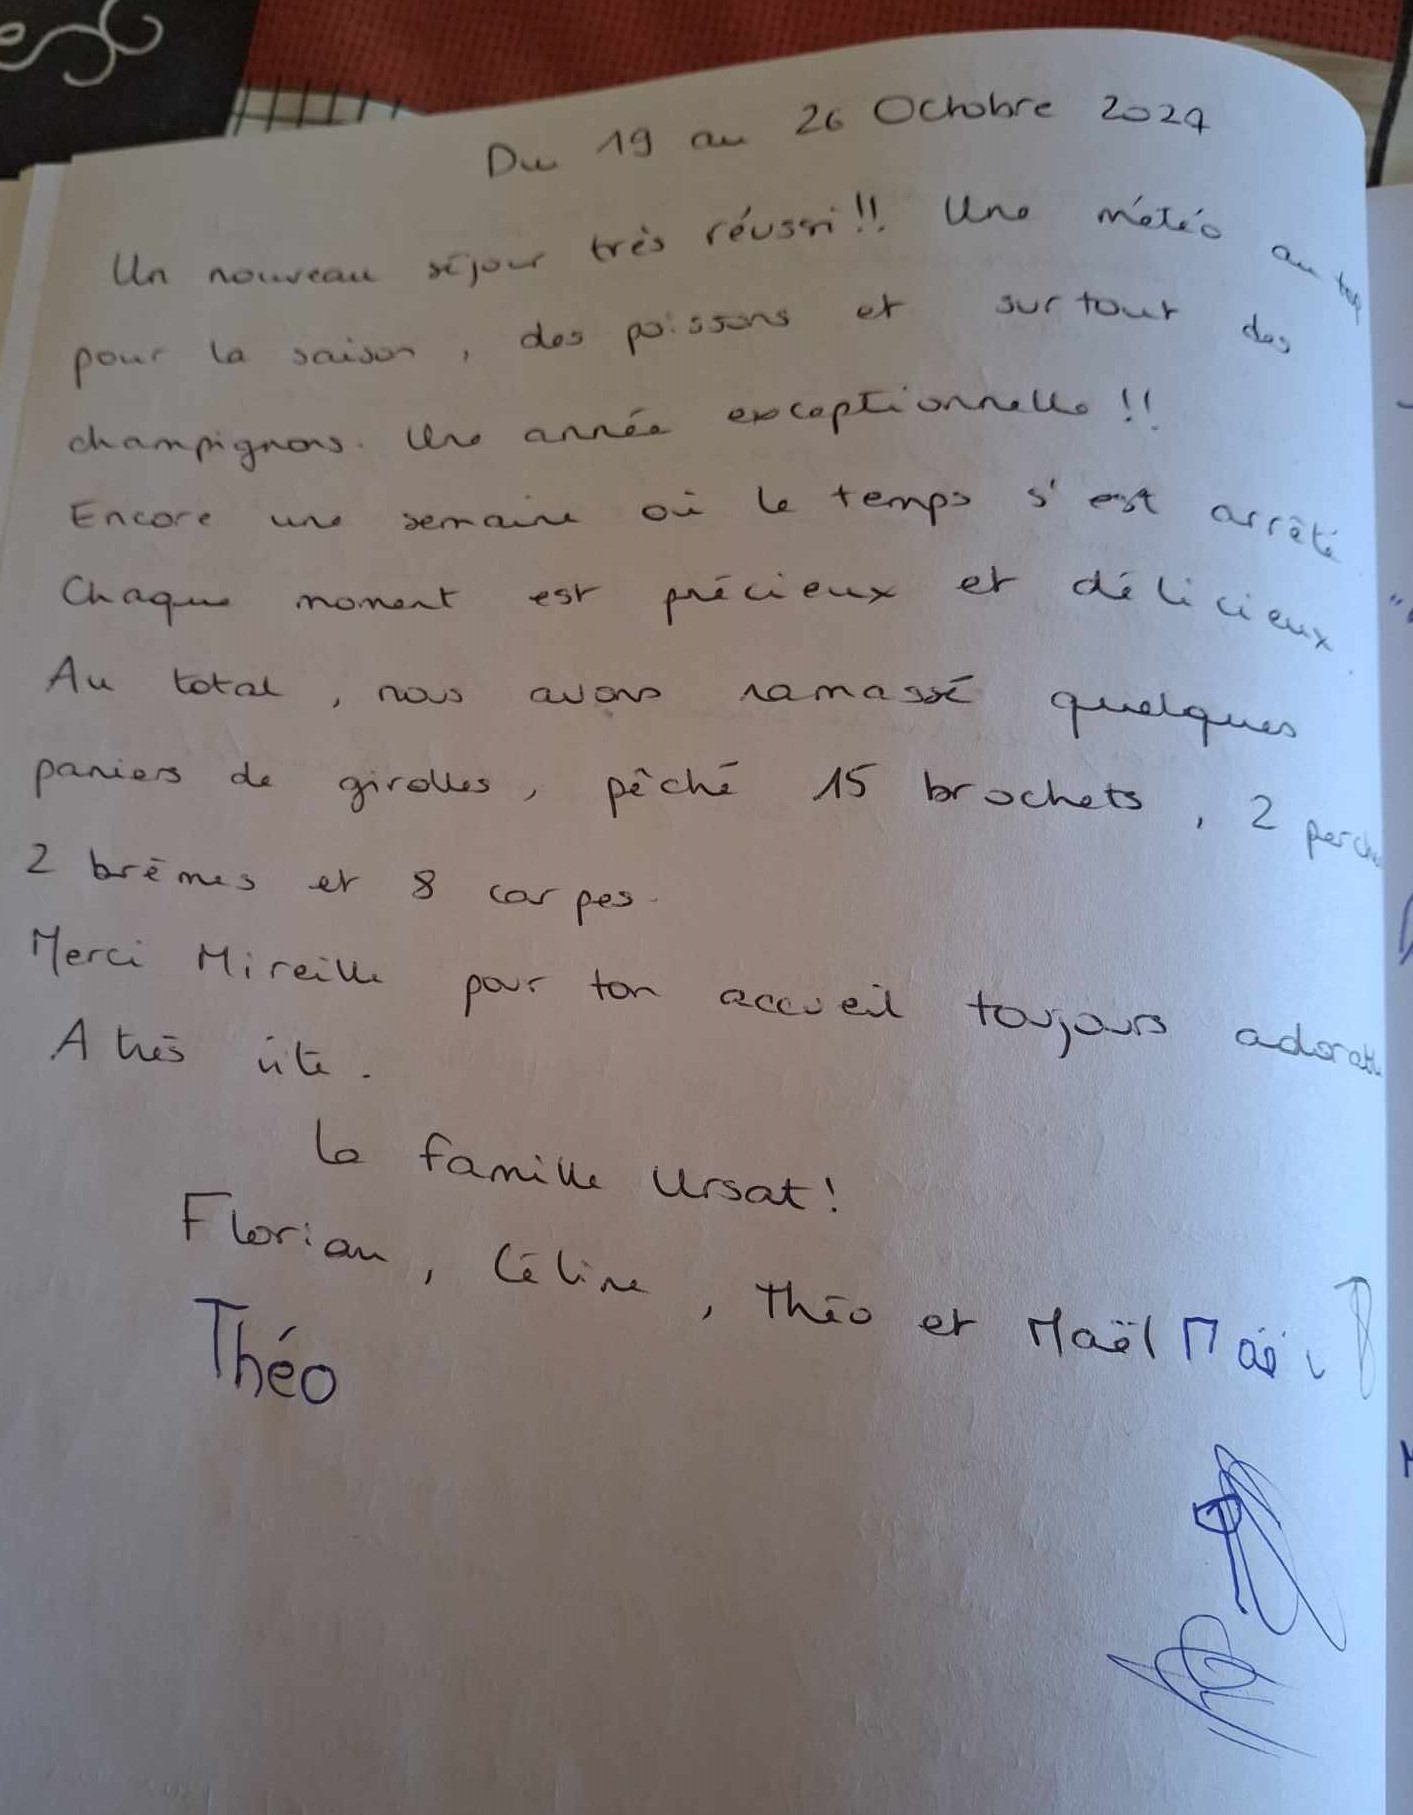 Du 19 au 26 Octobre 2024
Un nouveau séjour très réussi!! Une météo au top
pour la saison, des poissons et surtout des
champignons. Une année exceptionnelle!!
Encore une semaine où le temps s'est arrêté
Chaque moment est précieux et délicieux.
Au total, nous avons ramassé quelques
paniers de girolles, pêché 15 brochets, 2 perches
2 brèmes et 8 carpes.
Merci Mireille pour ton accueil toujours adorable
A très vite.
La famille Ursat!
Florian, Céline, Théo et Maël
Théo